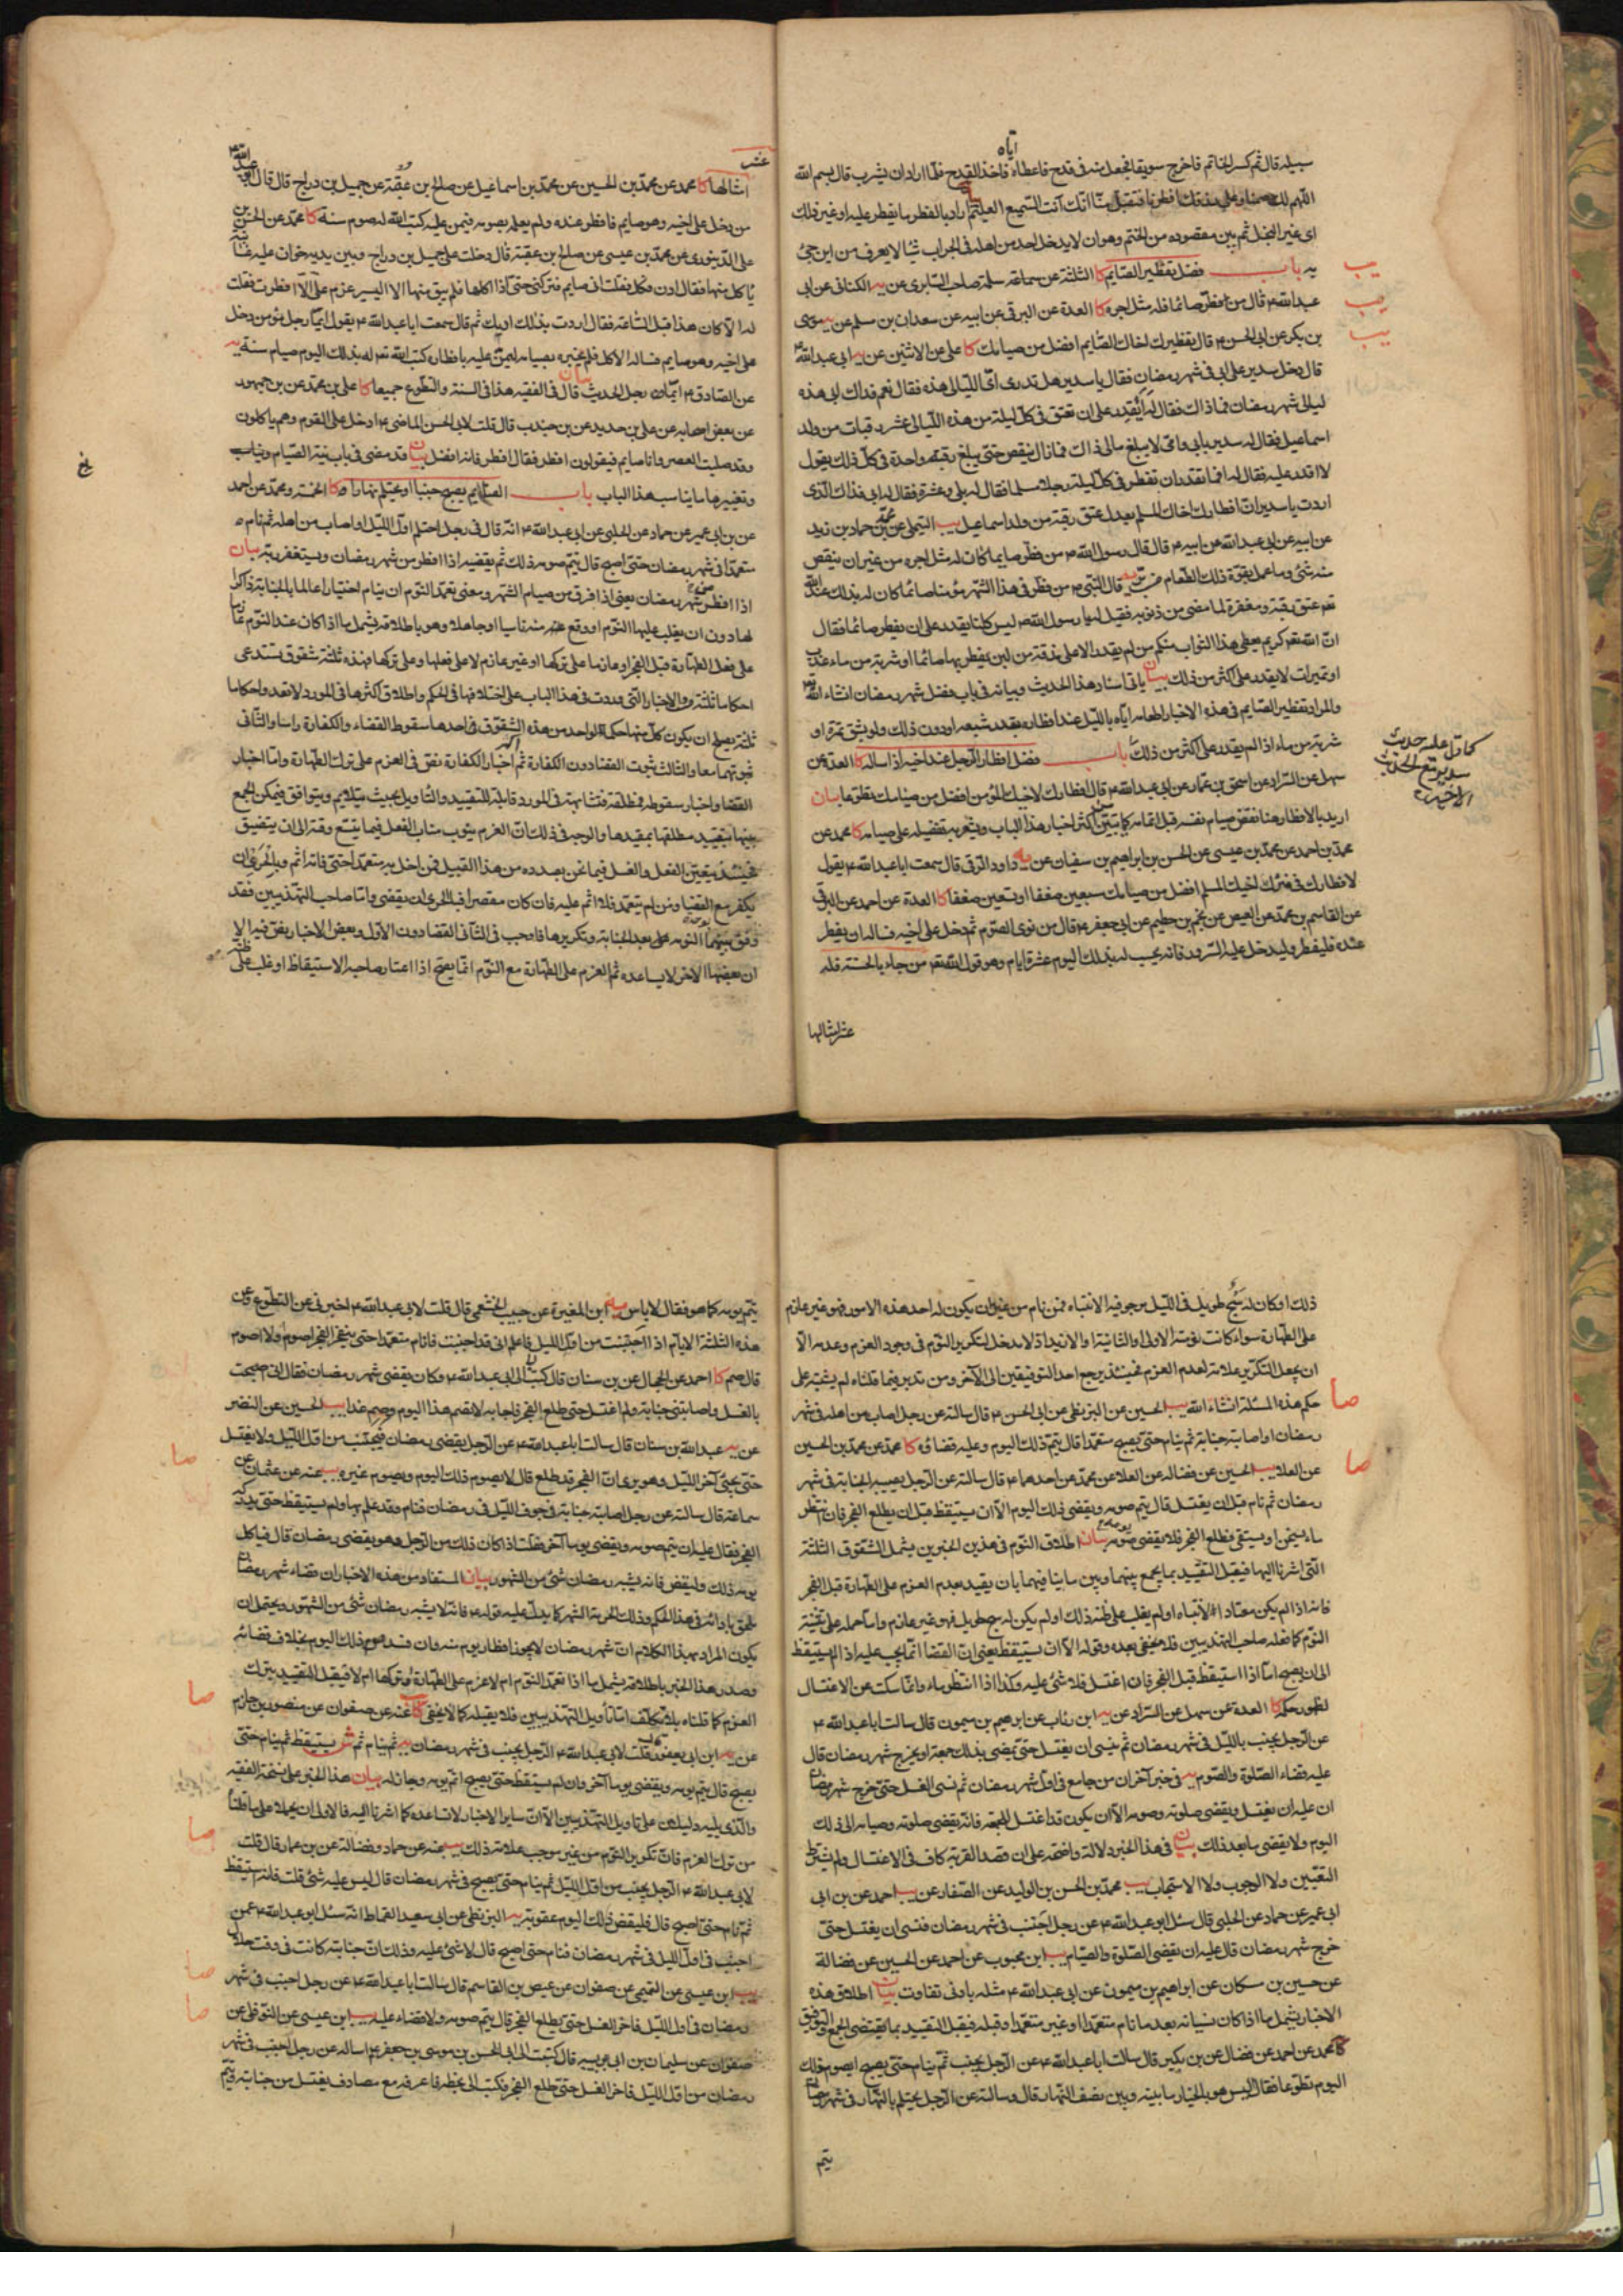 اياه
سبيله قال ثم كسر الخاتم فاخرج سويقا فجعل منه فى قدح فاعطاه فاخذ القدح فلما اراد ان يشرب قال بسم الله
اللهم لك صمنا وعلى رزقك افطرنا فتقبل منا انك انت السميع العليم اراد بالفطر ما يفطر عليه او غير ذلك
اى غير البخل ثم بين مقصوده من الختم وهو ان لا يدخل احد من اهله فى الجراب شيئا لا يعرف من اين جئ
به باب فضل تفطير الصايم كا الثلثة عن سماعة سلمة صاحب السابرى عن يه الكنانى عن ابى
عبد الله ع قال من فطر صائما فله مثل اجره كا العدة عن البرقى عن ابيه عن سعدان بن مسلم عن يه موسى
بن بكر عن ابى الحسن ع قال تفطيرك اخاك الصايم افضل من صيامك كا على عن الاثنين عن يه ابى عبد الله ع
قال دخل سدير على ابى فى شهر رمضان فقال يا سدير هل تدرى اى الليالى هذه فقال نعم فداك ابى هذه
ليالى شهر رمضان فما ذاك فقال له ايقدر على ان تعتق فى كل ليلة من هذه الليالى عشر رقبات من ولد
اسماعيل فقال له سدير بابى وامى لا يبلغ مالى ذاك فما زال ينقص حتى بلغ رقبة واحدة فى كل ذلك يقول
لا اقدر عليه فقال له افما تقدر ان تفطر فى كل ليلة رجلا مسلما فقال له بلى وعشرة فقال له ابى فذاك الذى
اردت يا سدير ان افطارك اخاك المسلم يعدل عتق رقبة من ولد اسماعيل يب التيملى عن محمد بن حماد بن زيد
عن ابيه عن ابى عبد الله عن ابيه ع قال قال رسول الله ص من فطر صايما كان له مثل اجره من غير ان ينقص
منه شئ وما عمل بقوة ذلك الطعام من بر يه قال النبى ص من فطر فى هذا الشهر مؤمنا صائما كان له بذلك عند الله
تعم عتق رقبة ومغفرة لما مضى من ذنوبه فقيل له يا رسول الله ص ليس كلنا يقدر على ان يفطر صائما فقال
ان الله تعم كريم يعطى هذا الثواب منكم من لم يقدر الا على مذقة من لبن يفطر بها صائما او شربة من ماء عذب
او تميرات لا يقدر على اكثر من ذلك بيان ياتى اسناد هذا الحديث وبيانه فى باب فضل شهر رمضان انشاء الله تع
والمراد تفطير الصايم فى هذه الاخبار اطعامه اياه بالليل عند افطاره بقدر شبعه او دون ذلك ولو بشق تمرة او
شربة من ماء اذا لم يقدر على اكثر من ذلك باب فضل افطار الرجل عند اخيه اذا ساله كا العدة عن
سهل عن السراد عن اسحق بن عمار عن ابى عبد الله ع قال افطارك لاخيك المؤمن افضل من صيامك تطوعا بيان
اريد بالافطار هنا نقض صيام نفسه قبل اتمامه كما يتبين من اكثر اخبار هذا الباب ويشعر به تفضيله على صيامه كا محمد عن
محمد بن احمد عن محمد بن عيسى عن الحسن بن ابراهيم بن سفيان عن يه داود الرقى قال سمعت ابا عبد الله ع يقول
لافطارك فى منزل اخيك المسلم افضل من صيامك سبعين ضعفا او تسعين ضعفا كا العدة عن احمد عن البرقى
عن القاسم بن محمد عن العيص عن نجم بن حطيم عن ابى جعفر ع قال من نوى الصوم ثم دخل على اخيه فساله ان يفطر
عنده فليفطر وليدخل عليه السرور فانه يحسب له بذلك اليوم عشرة ايام وهو قول الله تعم من جاء بالحسنة فله
عشر امثالها
يب
يب
يب
كما دل عليه حديث
سدير مع الحديث
الاخير
عشر
امثالها كا محمد عن محمد بن الحسين عن محمد بن اسماعيل عن صالح بن عقبة عن جميل بن دراج قال قال ابو عبد الله ع
من دخل على اخيه وهو صايم فافطر عنده ولم يعلمه بصومه فيمن عليه كتب الله له صوم سنة كا محمد عن الحسن بن
على الدينورى عن محمد بن عيسى عن صالح بن عقبة قال دخلت على جميل بن دراج وبين يديه خوان عليه غسانية
ياكل منها فقال ادن فكل فقلت انى صايم فتركنى حتى اذا اكلها فلم يبق منها الا اليسير عزم على الا افطرت فقلت
له الا كان هذا قبل الساعة فقال اردت بذلك ادبك ثم قال سمعت ابا عبد الله ع يقول ايما رجل مؤمن دخل
على اخيه وهو صايم فساله الاكل فلم يخبره بصيامه ليمن عليه بافطاره كتب الله تعم له بذلك اليوم صيام سنة يه
عن الصادق ع ايما رجل الحديث بيان قال فى الفقيه هذا فى السنة والتطوع جميعا كا على بن محمد عن بن جمهور
عن بعض اصحابه عن على بن حديد عن بن جندب قال قلت لابى الحسن الماضى ع ادخل على القوم وهم ياكلون
وقد صليت العصر وانا صايم فيقولون افطر فقال افطر فانه افضل بيان قد مضى فى باب نية الصيام
وتغييرها ما يناسب هذا الباب باب الصايم يصبح جنبا او يحتلم نهارا كا الخمسة ومحمد عن احمد
عن بن ابى عمير عن حماد عن الحلبى عن ابى عبد الله ع انه قال فى رجل احتلم اول الليل او اصاب من اهله ثم نام
متعمدا فى شهر رمضان حتى اصبح قال يتم صومه ذلك ثم يقضيه اذا افطر من شهر رمضان ويستغفر ربه بيان
اذا افطر من شهر رمضان يعنى اذا فرق من صيام الشهر ومعنى تعمد النوم ان ينام اختيارا عالما بالجنابة ذاكرا
لها دون ان يغلب عليها النوم او وقع عنه منه ناسيا او جاهلا وهو باطلاقه يشمل ما اذا كان عند النوم عازما
على فعل الطهارة قبل الفجر او عازما على تركها او غير عازم لا على فعلها وعلى تركها فهذه ثلثة شقوق تستدعى
احكاما ثلثة والاخبار التى وردت فى هذا الباب على اختلافها فى الحكم واطلاق اكثرها فى المورد لا تعد واحكاما
ثلثة يصلح ان يكون كل منها حكما لواحد من هذه الشقوق فى احدها سقوط القضاء والكفارة راسا والثانى
ثبوتهما معا والثالث ثبوت القضا دون الكفارة ثم اخبار الكفارة نص فى العزم على ترك الطهارة واما اخبار
القضا واخبار سقوطه فمطلقة متشابهة فى المورد قابلة للتقييد والتاويل بحيث يتلايم ويتوافق فيمكن الجمع
بينهما بتقييد مطلقها بمقيدها والوجه فى ذلك ان العزم ينوب مناب الفعل فيما يتسع وقته الى ان يتضيق
فحينئذ يتعين الفعل والغسل فيما نحن بصدده من هذا القبيل فمن اخل به متعمدا حتى فاته اثم وبالحرى ان
يكفر مع القضا ومن لم يتعمد فلا اثم عليه فان كان مقصرا فبالحرى ان يقضى واما صاحب التهذيبين فقد
وفق بينهما بوحدة النومة بعد الجنابة وتكريرها فاوجب فى الثانى القضا دون الاول وبعض الاخبار نص فيه الا
ان بعضها الاخر لا يساعده ثم العزم على الطهارة مع النوم انما يصح اذا اعتاد صاحبه الاستيقاظ او غلب على ظنه
ذلك او كان له سبح طويل فى الليل يرجو فيه الانتباه فمن نام من غير ان يكون له احد هذه الامور فهو غير عازم
على الطهارة سواء كانت نومته الاولى او الثانية او الازيد اذ لا مدخل لتكرير النوم فى وجود العزم وعدمه الا
ان يجعل التكرير علامة لعدم العزم فحينئذ يرجع احد التوفيقين الى الآخر ومن تدبر فيما قلناه لم يشتبه على
حكم هذه المسئلة انشاء الله يب الحسين عن البزنطى عن ابى الحسن ع قال سالته عن رجل اصاب من اهله فى شهر
رمضان او اصابته جنابة ثم ينام حتى يصبح متعمدا قال يتم ذلك اليوم وعليه قضاؤه كا محمد عن محمد بن الحسين
عن العلا يب الحسين عن فضالة عن العلا عن محمد عن احدهما ع قال سالته عن الرجل يصيبه الجنابة فى شهر
رمضان ثم نام قبل ان يغتسل قال يتم صومه ويقضى ذلك اليوم الا ان يستيقظ قبل ان يطلع الفجر فان انتظر
ماء يسخن او يستقى فطلع الفجر فلا يقضى صومه بيان اطلاق النوم فى هذين الخبرين يشمل الشقوق الثلثة
التى اشرنا اليها فيقبل التقييد بما يجمع بينهما وبين ما ينافيهما بان يقيد بعدم العزم على الطهارة قبل الفجر
فانه اذا لم يكن معتاد الانتباه او لم يغلب على ظنه ذلك او لم يكن له سبح طويل فهو غير عازم واما حمله على تثنية
النوم كما فعله صاحب التهذيبين فلا يخفى بعده وقوله الا ان يستيقظ يعنى ان القضا انما يجب عليه اذا لم يستيقظ
الى ان يصبح اما اذا استيقظ قبل الفجر فان اغتسل فلا شئ عليه وكذا اذا انتظر ماء وانما سكت عن الاغتسال
لظهور حكمه كا العدة عن سهل عن السراد عن يه ابن رئاب عن ابرهيم بن ميمون قال سالت ابا عبد الله ع
عن الرجل يجنب بالليل فى شهر رمضان ثم ينسى ان يغتسل حتى يمضى بذلك جمعة او يخرج شهر رمضان قال
عليه قضاء الصلوة والصوم يه فى خبر آخر ان من جامع فى اول شهر رمضان ثم نسى الغسل حتى خرج شهر رمضان
ان عليه ان يغتسل ويقضى صلوته وصومه الا ان يكون قد اغتسل للجمعة فانه يقضى صلوته وصيامه الى ذلك
اليوم ولا يقضى ما بعد ذلك بيان فى هذا الخبر دلالة واضحة على ان قصد القربة كاف فى الاغتسال ولم يشترط
التعيين ولا الوجوب ولا الاستحباب يب محمد بن الحسن بن الوليد عن الصفار عن يب احمد عن بن ابى
ابى عمير عن حماد عن الحلبى قال سئل ابو عبد الله ع عن رجل اجنب فى شهر رمضان فنسى ان يغتسل حتى
خرج شهر رمضان قال عليه ان يقضى الصلوة والصيام يب ابن محبوب عن احمد عن الحسين عن فضالة
عن حسين بن مسكان عن ابراهيم بن ميمون عن ابى عبد الله ع مثله بادنى تفاوت بيان اطلاق هذه
الاخبار يشمل ما اذا كان نسيانه بعد ما نام متعمدا او غير متعمد او قبله فيقبل التقييد بما يقتضى الجمع والتوفيق
كا محمد عن احمد عن فضال عن بن بكير قال سالت ابا عبد الله ع عن الرجل يجنب ثم ينام حتى يصبح ايصوم ذلك
اليوم تطوعا فقال اليس هو بالخيار ما بينه وبين نصف النهار قال وسالته عن الرجل يحتلم بالنهار فى شهر رمضان
يتم
صا
صا
يتم يومه كما هو فقال لا باس يه ابن المغيرة عن حبيب الخثعمى قال قلت لابى عبد الله ع اخبرنى عن التطوع وعن
هذه الثلثة الايام اذا اجنبت من اول الليل فاعلم انى قد اجنبت فانام متعمدا حتى ينفجر الفجر اصوم او لا اصوم
قال صم كا احمد عن الحجال عن بن سنان قال كتب ابى الى ابى عبد الله ع وكان يقضى شهر رمضان فقال انى اصبحت
بالغسل واصابتنى جنابة ولم اغتسل حتى طلع الفجر فاجابه لا تصم هذا اليوم وصم غدا يب الحسين عن النضر
عن يه عبد الله بن سنان قال سالت ابا عبد الله ع عن الرجل يقضى رمضان فيجنب من اول الليل ولا يغتسل
حتى يجئ آخر الليل وهو يرى ان الفجر قد طلع قال لا يصوم ذلك اليوم ويصوم غيره يب عنه عن عثمان عن
سماعة قال سالته عن رجل اصابته جنابة فى جوف الليل فى رمضان فنام وقد علم بها ولم يستيقظ حتى يدركه
الفجر فقال عليه ان يتم صومه ويقضى يوما آخر فقلت اذا كان ذلك من الرجل وهو يقضى رمضان قال فياكل
يومه ذلك وليقض فانه يشبه رمضان شئ من الشهور بيان المستفاد من هذه الاخبار ان قضاء شهر رمضان
يلحق بادائه فى هذا الحكم وذلك لحرمة الشهر كما يدل عليه قوله ع فانه لا يشبه رمضان شئ من الشهور ويحتمل ان
يكون المراد بهذا الكلام ان شهر رمضان لا يجوز افطار يوم منه وان فسد صوم ذلك اليوم بخلاف قضائه
وصدر هذا الخبر باطلاقه يشمل ما اذا تعمد النوم ام لا عزم على الطهارة او تركها ام لا فيقبل التقييد بترك
العزم كما قلناه بلا تكلف اما تأويل التهذيبين فلا يقبله كما لا يخفى كا عنه عن صفوان عن منصور بن حازم
عن يه ابن ابى يعفور قال قلت لابى عبد الله ع الرجل يجنب فى شهر رمضان يه ثم ينام ثم ش يستيقظ ثم ينام حتى
يصبح قال يتم يومه ويقضى يوما آخر وان لم يستيقظ حتى يصبح اتم يومه وجاز له بيان هذا الخبر على نسخة الفقيه
والذى يليه دليلان على تاويل التهذيبين الا ان ساير الاخبار لا تساعده كما اشرنا اليه فالاولى ان يحملا على ما قلنا
من ترك العزم فان تكرير النوم من غير موجب علامة ذلك يب عنه عن حماد وفضالة عن بن عمار قال قلت
لابى عبد الله ع الرجل يجنب من اول الليل ثم ينام حتى يصبح فى شهر رمضان قال ليس عليه شئ قلت فانه استيقظ
ثم نام حتى اصبح قال فليقض ذلك اليوم عقوبة يه البزنطى عن ابى سعيد القماط انه سئل ابو عبد الله ع عمن
اجنب فى اول الليل فى شهر رمضان فنام حتى اصبح قال لا شئ عليه وذلك ان جنابته كانت فى وقت حلال
يب ابن عيسى عن التميمى عن صفوان عن عيص بن القاسم قال سالت ابا عبد الله ع عن رجل اجنب فى شهر
رمضان فى اول الليل فاخر الغسل حتى يطلع الفجر قال يتم صومه ولا قضاء عليه يب ابن عيسى عن النوفلى عن
صفوان عن سليمان بن ابى زينبه قال كتبت الى ابى الحسن بن موسى بن جعفر ع اساله عن رجل اجنب فى شهر
رمضان من اول الليل فاخر الغسل حتى طلع الفجر فكتب الى بخطه اعرفه مع مصادف يغتسل من جنابته ويتم
صا
صا
صا
صا
صا